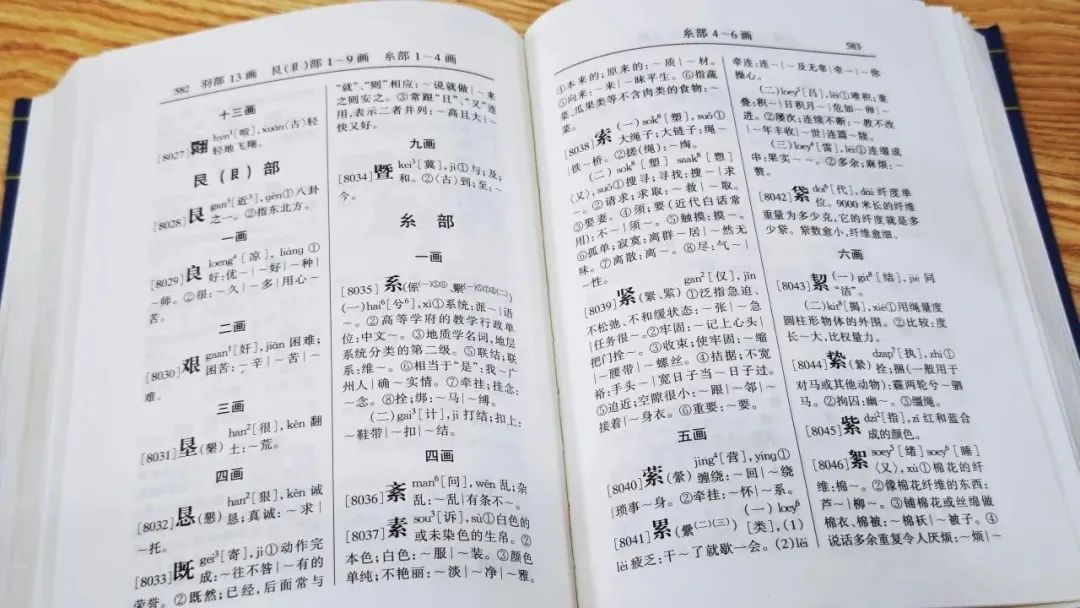 582 羽部 13 画 艮(𠄎)部 1～9 画 糸部 1～4 画
十三画
[8027]翾 hyn¹[喧], xuān〈古〉轻
轻地飞翔。
艮(𠄎)部
[8028]艮 gan³[近³], gèn①八卦
之一。②指东北方。
一画
[8029]良 loeng⁴[凉], liáng ①
好:优～|～好|～种|
～师。②很:～久|～多|用心～
苦。
二画
[8030]艰 gaan¹[奸], jiān 困难;
困苦:～辛|～苦|～
难。
三画
[8031]垦(墾) han²[很], kěn 翻
土:～荒。
四画
[8032]恳(懇) han²[狠], kěn 诚
恳;真诚:～求|
～托。
[8033]既 gei³[寄], jì①动作完
成:～往不咎|～有的
荣誉。②既然;已经,后面常与
“就”、“则”相应:～说就做|～来
之则安之。③常跟“且”、“又”连
用,表示二者并列:～高且大|～
快又好。
九画
[8034]暨 kei³[冀], jì①与;及;
和。②〈古〉到;至:～
今。
糸部
一画
[8035]系(係㈠⑤⑥、繫㈠⑤⑦⑧㈡)
(一)hai⁶[兮⁶], xì①系统:派～|语
～。②高等学府的教学行政单
位:中文～。③地质学名词,地层
系统分类的第二级。⑤联结;联
系:维～。⑥相当于“是”:我～广
州人|确～实情。⑦牵挂;挂念:
～念。⑧拴;绑:～马|～缚。
(二)gai³[计], jì 打结;扣上:
～鞋带|～扣|～结。
四画
[8036]紊 man⁶[问], wěn 乱;杂
乱:～乱|有条不～。
[8037]素 sou³[诉], sù①白色的
或未染色的生帛。②
本色;白色:～服|～装。③颜色
单纯;不艳丽:～淡|～净|～雅。
糸部 4～6 画 583
④本来的;原来的:～质|～材。
⑤向来:～来|～昧平生。⑥指蔬
菜、瓜果类等不含肉类的食物:～
菜。
[8038]索 (一)sok³[塑], suǒ①
大绳子;大链子:绳～|
铁～桥。②搓(绳):～绹。
(二)sok³[塑] saak³[慂]
〈又〉, suǒ①搜寻;寻找:搜～|求
～。②请求;求取:～救|～取。
③娶妻。④须;要(近代白话常
用):不～|须～。⑤触摸:摸～。
⑥孤单;寂寞:离群～居|～然无
味。⑦离散:离～。⑧尽:气～|
～性。
[8039]紧(緊、紧) gan²[仅], jǐn
①泛指急迫、
不松弛、不和缓状态:～张|～急
|任务很～。②牢固:～记上心头|
把门拴～。③收束;使牢固:～缩
|～腰带|～螺丝。④拮据;不宽
裕:手头～|宽日子当～日子过。
⑤迫近;空隙很小:～跟|～邻|～
接着|～身衣。⑥重要:～要。
五画
[8040]萦(縈) jing⁴[营], yíng①
缠绕:～回|～绕
|琐事～身。②牵挂:～怀|～系。
[8041]累(纍㈡㈢) (一)loey⁶
[类], (1)
lèi 疲乏:干～了就歇一会。(2)lěi
牵连:连～|～及无辜|牵～|～你
操心。
(二)loey⁵[吕], lěi①堆积;重
叠:积～|日积月～|危如～卵|～
进。②屡次;连续不断:～教不改
|～年丰收|～世|连篇～牍。
(三)loey⁴[雷], léi①连缀成
串:果实～～。②多余;麻烦:～
赘。
[8042]紫 doi⁶[代], dài 纤度单
位。9000 米长的纤维
重量为多少克,它的纤度就是多
少紫。紫数愈小,纤维愈细。
六画
[8043]絜 (一)git³[结], jié 同
“洁”。
(二)kit³[揭], xié①用绳量度
圆柱形物体的外围。②比较:度
长～大,比权量力。
[8044]絷(縶) dzap⁷[执], zhí①
拴;捆(一般用于
对马或其他动物):霾两轮兮～驷
马。②拘囚:幽～。③缰绳。
[8045]紫 dzi²[指], zǐ 红和蓝合
成的颜色。
[8046]絮 soey⁵[绪] soey⁶[睡]
〈又〉, xù①棉花的纤
维:棉～。②像棉花纤维的东西:
芦～|柳～。③铺棉花或丝绵做
棉衣、棉被:～棉袄|～被子。④
说话多余重复令人厌烦:～烦|～